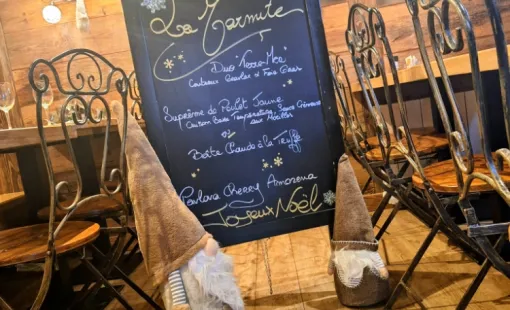 La Marmite
Duo Terre-Mer
Suprême de Poulet Jaune
Cuisson Basse Température, Sauce Crémeuse
aux Morilles
ou
Boîte Chaude à la Truffe
Pavlova Cherry Amarena
Joyeux Noël